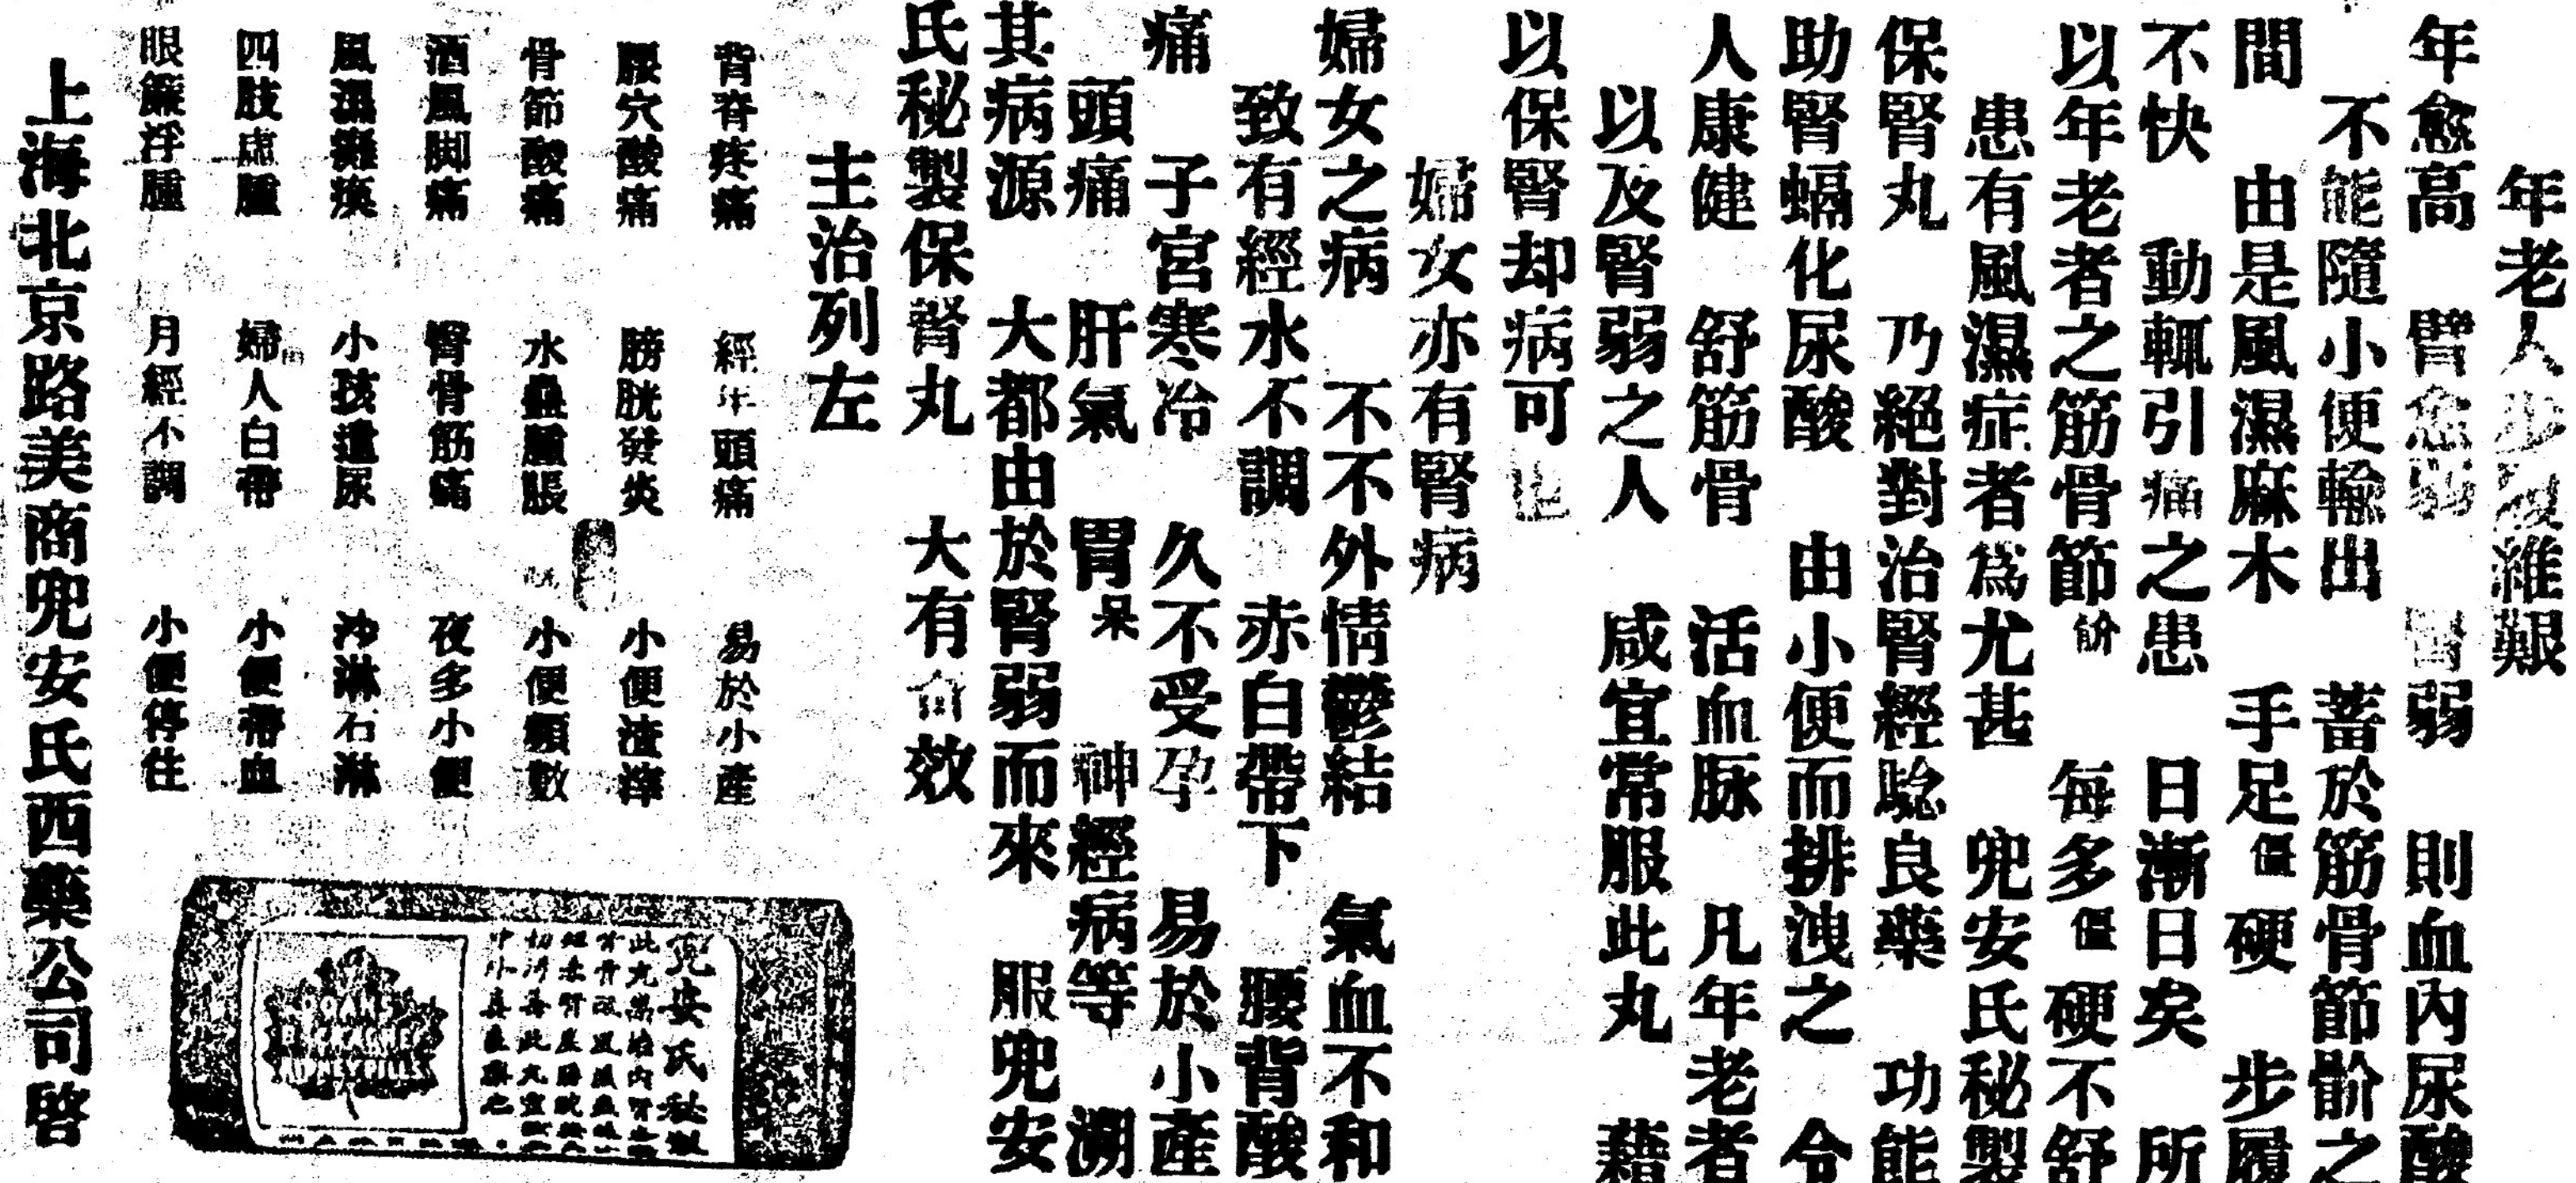 年老人步履維艱
年愈高 腎愈弱 腎弱 則血內尿酸
不能隨小便輸出 蓄於筋骨節骱之
間 由是風濕麻木 手足僵硬 步履
不快 動輒引痛之患 日漸日矣 所
以年老者之筋骨節骱 每多僵硬不舒
患有風濕症者爲尤甚 兜安氏秘製
保腎丸 乃絕對治腎經驗良藥 功能
助腎蝸化尿酸 由小便而排洩之 令
人康健 舒筋骨 活血脉 凡年老者
以及腎弱之人 咸宜常服此丸 藉
以保腎却病可也
婦女亦有腎病
婦女之病 不不外情鬱結 氣血不和
致有經水不調 赤白帶下 腰背酸
痛 子宮寒冷 久不受孕 易於小產
頭痛 肝氣 胃呆 神經病等 溯
其病源 大都由於腎弱而來 服兜安
氏秘製保腎丸 大有奇效
主治列左
背脊疼痛 經年頭痛 易於小產
腰穴酸痛 膀胱發炎 小便渣滓
骨節酸痛 水蠱腫脹 小便頻數
酒風脚痛 腎骨筋痛 夜多小便
風濕癱瘓 小孩遺尿 沙淋石淋
四肢虛腫 婦人白帶 小便帶血
眼簾浮腫 月經不調 小便停住
兜安氏秘製
DOAN'S
BACKACHE
KIDNEY PILLS
上海北京路美商兜安氏西藥公司啓